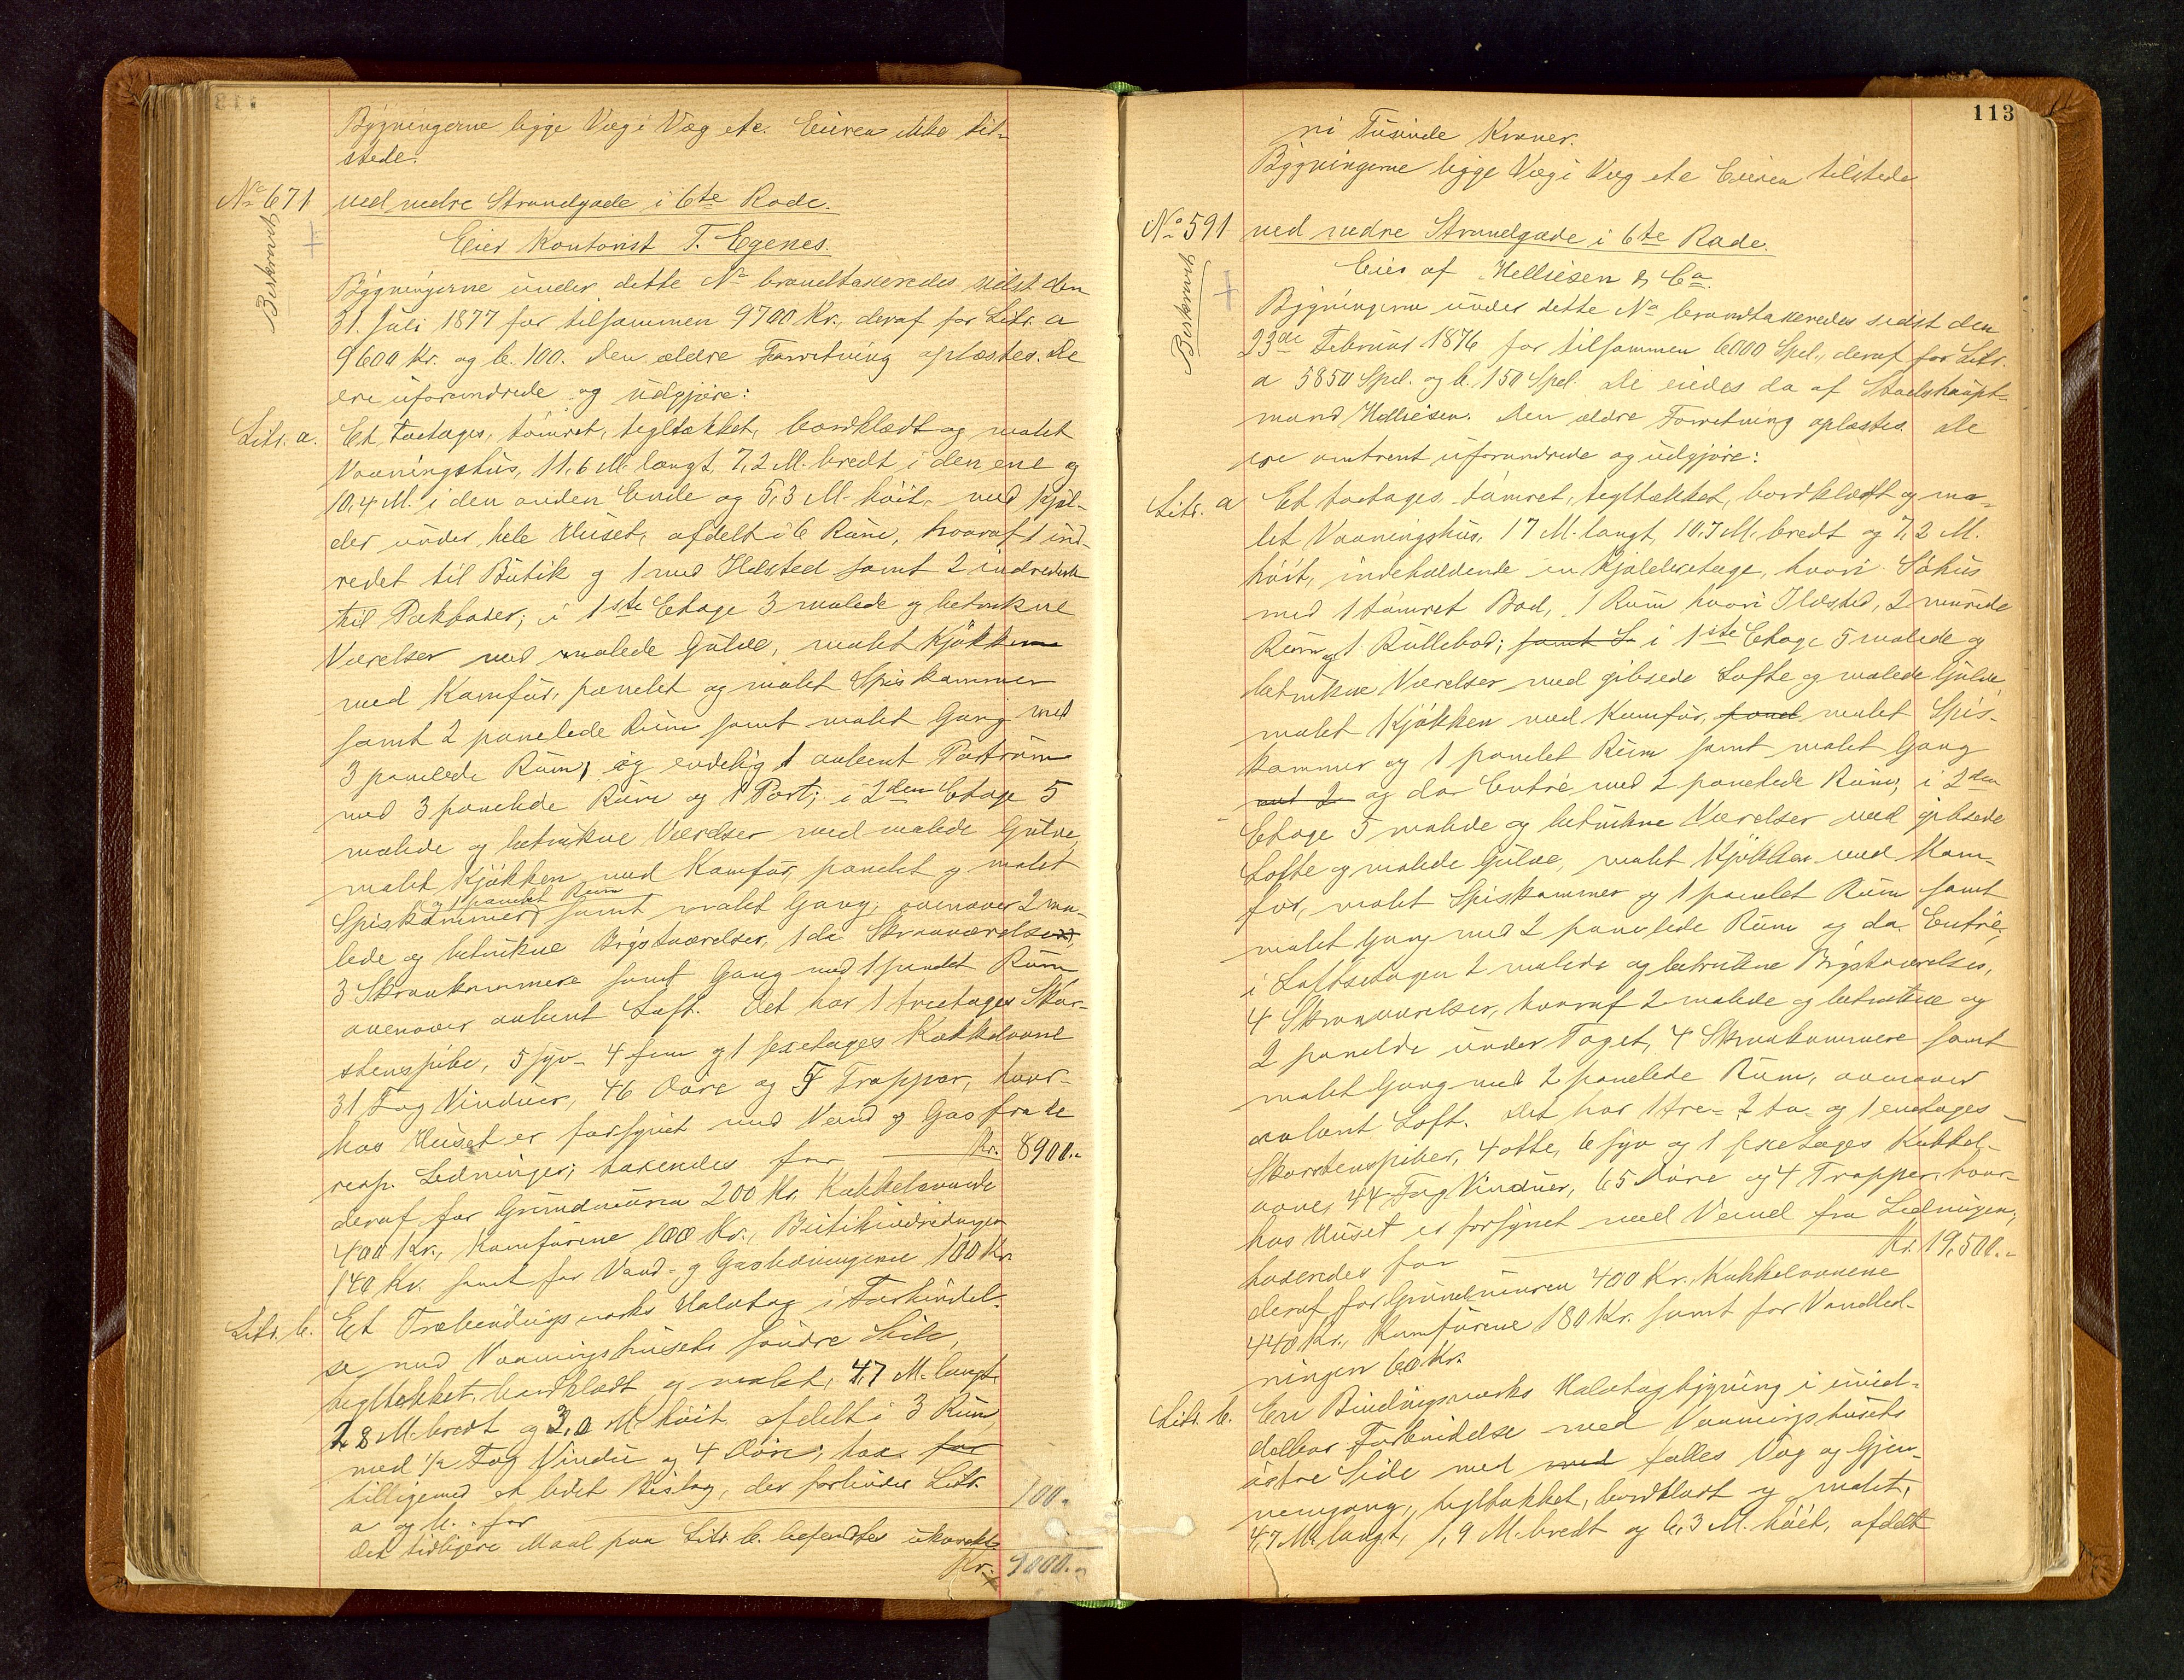 Bygningerne ligge Væg i Væg etc. Eieren ikke til-
stede.
No 671 ved nedre Strandgade i 6te Rode.
Eier Kontorist T. Egenes.
Bygningerne under dette No brandtaxeredes sidst den
31. Juli 1877 for tilsammen 9700 Kr., deraf for Litr. a
9600 Kr. og b. 100. Den ældre Forretning oplæstes. De
ere uforandrede og udgjøre:
Litr. a. Et toetages, tømret, tegltækket, bordklædt og malet
Vaaningshus, 11,6 M. langt, 7,2 M. bredt i den ene og
10,4 M. i den anden Ende og 5,3 M. høit, med Kjæl-
der under hele Huset, afdelt i 6 Rum, hvoraf 1 ind-
redet til Butik og 1 med Ildsted samt 2 indredede
til Pakboder; i 1ste Etage 3 malede og betrukne
Værelser med malede Gulve, malet Kjøkken
med Komfur, panelet og malet Spiskammer
samt 2 panelede Rum samt malet Gang med
3 panelede Rum, og endelig 1 aabent Portrum
med 3 panelede Rum og 1 Port; i 2den Etage 5
malede og betrukne Værelser med malede Gulve,
malet Kjøkken med Komfur, panelet og malet
og 1 panelet Rum
Spiskammer samt malet Gang; ovenover 2 ma-
lede og betrukne Brystværelser, 1 do Skraaværelser,
3 Skraakammere samt Gang med 1 panelet Rum
ovenover aabent Loft. Det har 1 treetages Skor-
stenspibe, 5 syv- 4 fem og 1 sexetages Kakkelovne
31 Fag Vinduer, 46 Døre og 5 Trapper, hvor-
hos Huset er forsynet med Vand og Gas fra de
resp. Ledninger; taxeredes for Kr. 8900.-
deraf for Grundmuren 200 Kr. Kakkelovnene
400 Kr., Komfurene 100 Kr., Butikindredningen
140 Kr. samt for Vand- og Gasledningerne 100 Kr.
Litr. b. Et Træbindingsverks Halvtag i Forbindel-
se med Vaaningshusets søndre Side,
tegltækket, bordklædt og malet, 4,7 M. langt
2,8 M. bredt og 3,0 M. høit afdelt i 3 Rum
med 1/2 Fag Vindu og 4 Døre; tax. for
tilligemed et lidet Bislag, der forbinder Litr.
a og b. for 100.-
Det tidligere Maal paa Litr. b. befandtes ukorrekt.
Kr. 9000.-
Østbrandt
113
ni Tusinde Kroner.
Bygningerne ligge Væg i Væg etc Eieren tilstede
No 591 ved nedre Strandgade i 6te Rode.
Eies af Helliesen & Co.
Bygningerne under dette No brandtaxeredes sidst den
23de Februar 1876 for tilsammen 6000 Spd., deraf for Litr.
a 5850 Spd. og b. 150 Spd. De eiedes da af Stadshaupt-
mand Helliesen. Den ældre Forretning oplæstes. De
ere omtrent uforandrede og udgjøre:
Litr. a Et toetages tømret, tegltækket, bordklædt og ma-
let Vaaningshus, 17 M. langt, 10,7 M. bredt og 7,2 M.
høit, indeholdende en Kjælderetage, hvori Søhus
med 1 tømret Bod, 1 Rum hvori Ildsted, 2 murede
Rum og 1 Rullebod; samt S i 1ste Etage 5 malede og
betrukne Værelser med gibsede Lofte og malede Gulve
malet Kjøkken med Komfur, panel malet Spis-
kammer og 1 panelet Rum samt malet Gang
med 2 og do Entré med 2 panelede Rum; i 2den
Etage 5 malede og betrukne Værelser med gibsede
Lofte og malede Gulve, malet Kjøkken med Kom-
fur, malet Spiskammer og 1 panelet Rum samt
malet Gang med 2 panelede Rum og do. Entré,
i Loftsetagen 2 malede og betrukne Brystværelser,
4 Skraaværelser, hvoraf 2 malede og betrukne og
2 panelede under Taget, 4 Skraakammere samt
malet Gang med 2 panelede Rum, ovenover
aabent Loft. Det har 1 tre- 2 to- og 1 enetages
Skorstenspiber, 4 otte, 6 syv og 1 sexetages Kakkel-
ovne, 44 Fag Vinduer, 65 Døre og 4 Trapper, hvor-
hos Huset er forsynet med Vand fra Ledningen,
taxeredes for Kr. 19,500.-
deraf for Grundmuren 400 Kr., Kakkelovnene
440 Kr., Komfurene 180 Kr. samt for Vandled-
ningen 60 Kr.
Litr. b. En Bindingsverks Halvtagbygning i umid-
delbar Forbindelse med Vaaningshusets
østre Side med med fælles Væg og Gjen-
nemgang, tegltækket, bordklædt og malet,
4,7 M. langt, 1,9 M. bredt og 6,3 M. høit, afdelt